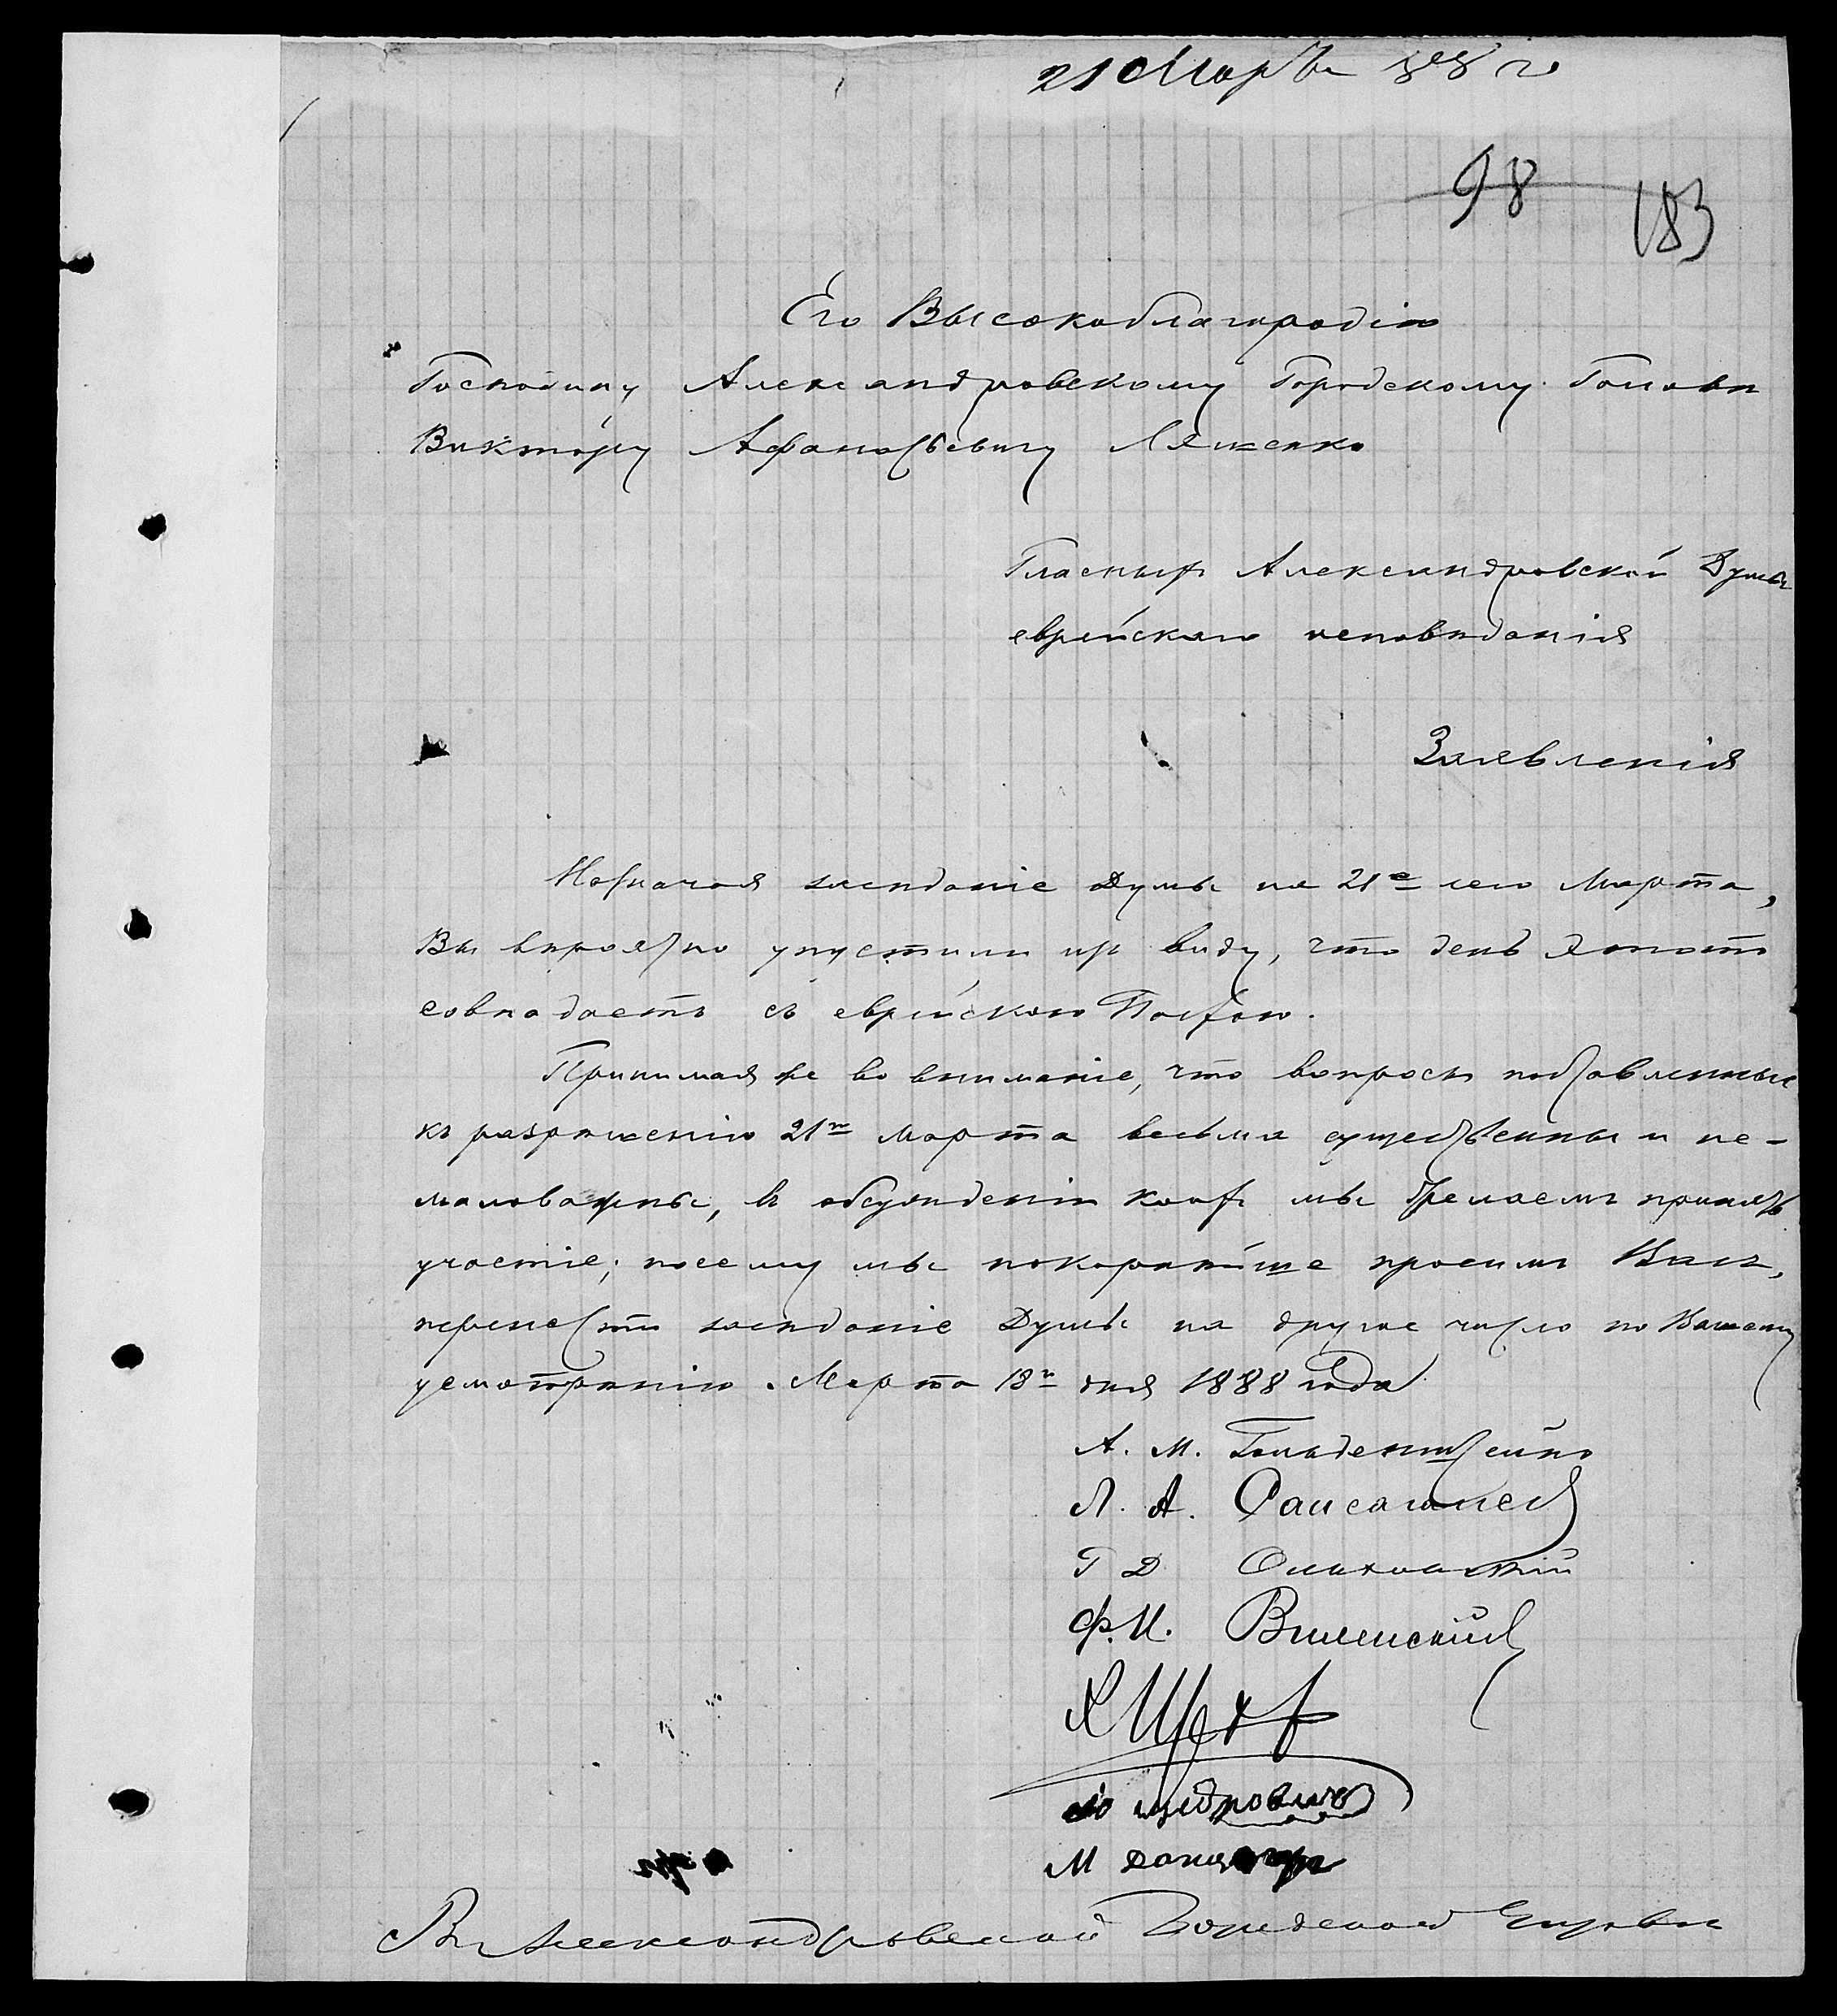 21 Марта 888 г.
98
183
Его Высокоблагородію
Господину Александровскому Городскому Головѣ
Виктору Афанасьевичу Ляшенко
Гласныхъ Александровской Думы
еврейскаго исповѣданія
Заявленія
Назначая засѣданіе Думы на 21е сего Марта,
Вы вѣроятно упустили изъ виду, что день этотъ
совпадаетъ съ еврейскою Пасхою.
Принимая же во вниманіе, что вопросы поставленные
къ разрѣшенію 21го марта весьма существенны и не-
маловажны, въ обсужденіи коихъ мы желаемъ принять
участіе; посему мы покорнѣйше просимъ Васъ,
перенести засѣданіе Думы на другое число по Вашему
усмотрѣнію. Марта 18го дня 1888 года
А. М. Гольденштейнъ
Л. А.
Г Д
Ф. И. Виленскій
М
Въ Александровской Городской Управы